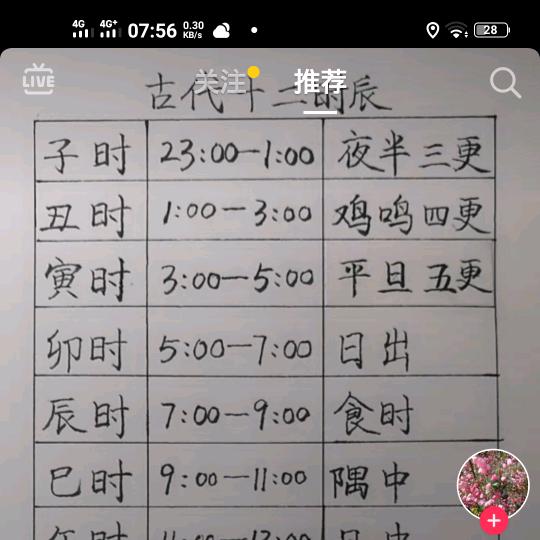 4G 4G+ 07:56 0.30 KB/s 28
LIVE 关注 推荐
古代十二时辰
子时 23:00—1:00 夜半三更
丑时 1:00—3:00 鸡鸣四更
寅时 3:00—5:00 平旦五更
卯时 5:00—7:00 日出
辰时 7:00—9:00 食时
巳时 9:00—11:00 隅中